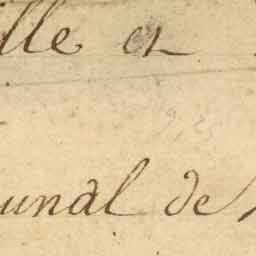 ille et
unal de